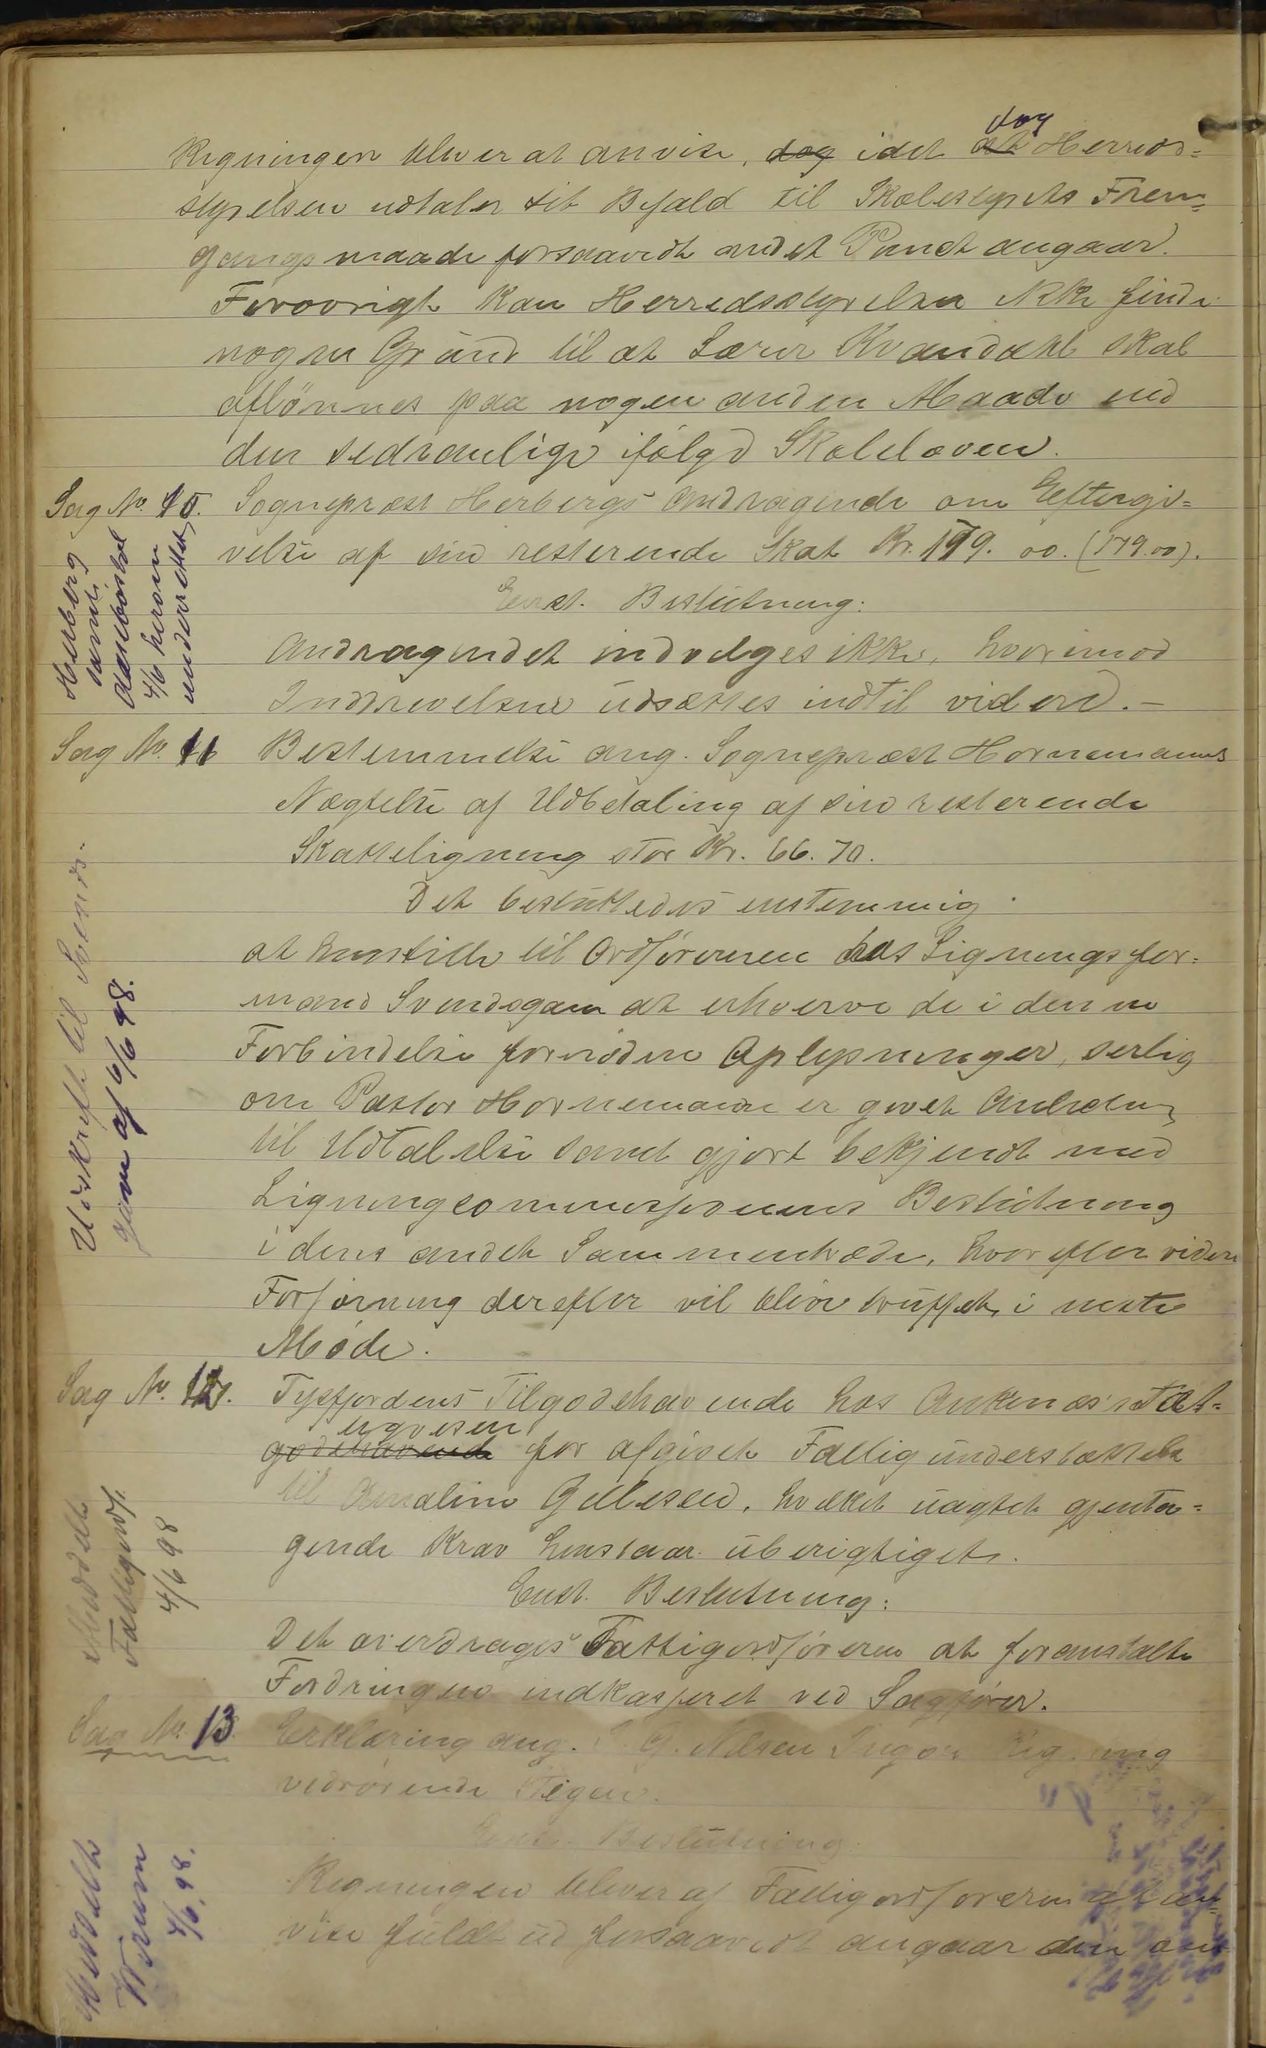 Regningen bliver at anvise, dog idet dog Herreds-
styrelsen udtaler sit Bifald til Skolestyrets Frem-
gangsmaade forsaavidt andet Punct angaar.
Forøvrigt kan Herredsstyrelsen ikke finde
nogen Grund til at Lærer Kvandahl skal
aflønnes paa nogen anden Maade end
den sedvanlige ifølge Skoleloven.
Sag No. 10. Sogneprest Herbergs Andragende om Eftergi-
velse af sin resterende Skat Kr. 179.00. (179.00).
Enst. Beslutning:
Andragendet indvilges ikke, hvorimod
Inddrivelsen udsættes indtil videre.-
Herberg
samt
4/6 herom
underrettet
Sag No. 11 Bestemmelse ang. Sogneprest Hornemanns
Nægtelse af Udbetaling af sin resterende
Skatteligning stor Kr. 66.70.
Det besluttedes enstemmig
at henstille til Ordføreren hos Ligningsfor-
mand Svendsgam at erhverve de i denne
Forbindelse fornødne Oplysninger, serlig
om Pastor Hornemann er givet Anledning
til Udtalelse samt gjort bekjendt med
Ligningscommissionens Beslutning
i dens andet Sammentræde, hvorefter videre
Forføining derefter vil blive truffet i neste
Møde.
Udskrift til Svends-
gam af 6/6 98.
Sag No. 12. Tysfjordens Tilgodehavende hos Ankenes Fat-
godehavende
for afgivet Fattigunderstøttelse
til Amaline Gullesen, hvilket uagtet gjenta-
gende Krav henstaar uberigtiget.
Enst. Beslutning:
Det overdrages Fattigordføreren at foranstalte
Fordringen indkasseret ved Sagfører.
Meddelt
Fattigordf.
4/6 98
Sag No. 13 Erklæring ang. G. Nilsen Regning
vedrørende Stigen.
Enst. Beslutning:
Regningen bliver af Fattigordføreren at an-
vise fuldt ud forsaavidt angaar den
Meddelt
4/6 98.